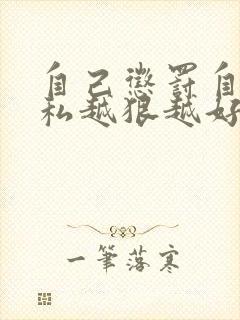 自己懲罰自
私越狠越好
一筆落寒